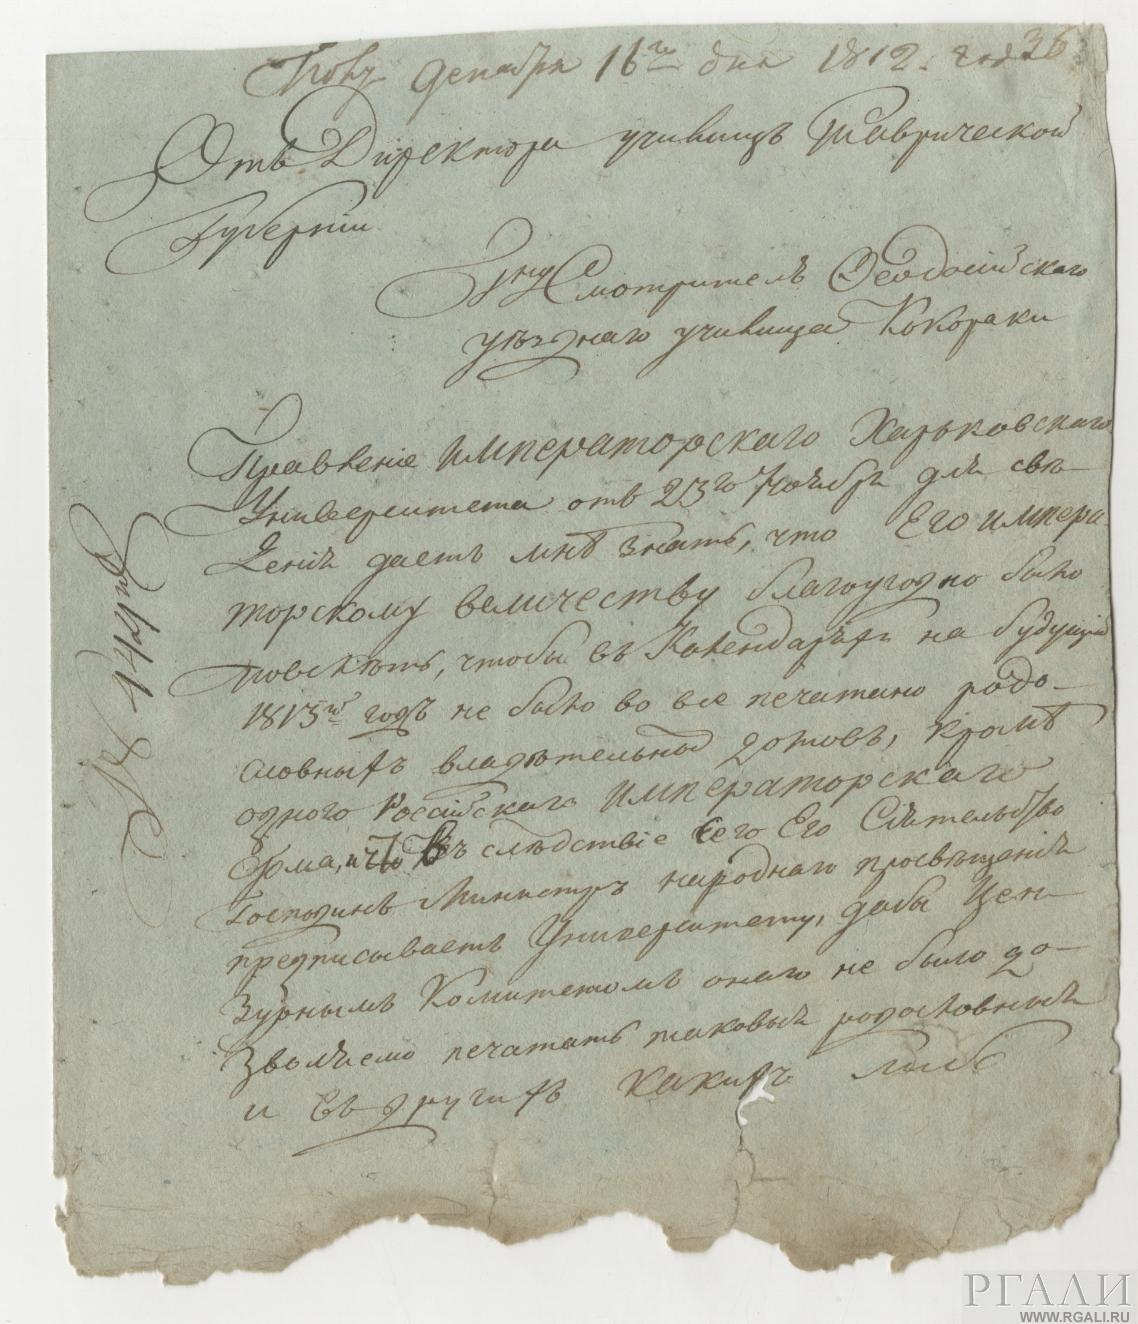 Пол. декабря 16го дня 1812. года
36
Отъ Директора училищъ Таврической
Губерніи
Гну Смотрителю Ѳеодосійскаго
уѣзднаго училища Кокораки
Правленіе Императорскаго Харьковскаго
Университета отъ 23го Ноября для свѣ-
денія даетъ мнѣ знать, что Его импера-
торскому величеству благоугодно было
повелѣть, чтобы въ Календаряхъ на будущій
1813й годъ не было во все печатано родо-
словныхъ владѣтельныхъ домовъ, кромѣ
одного Россійскаго Императорскаго
Дома, и что въ слѣдствіе сего Его Сіятельство
Господинъ Министръ народнаго просвѣщенія
предписываетъ Университету, дабы Цен-
зурнымъ Комитетомъ онаго не было до-
зволяемо печатать таковыя родословныя
и въ другихъ какихъ либо
№ 944
РГАЛИ
WWW.RGALI.RU